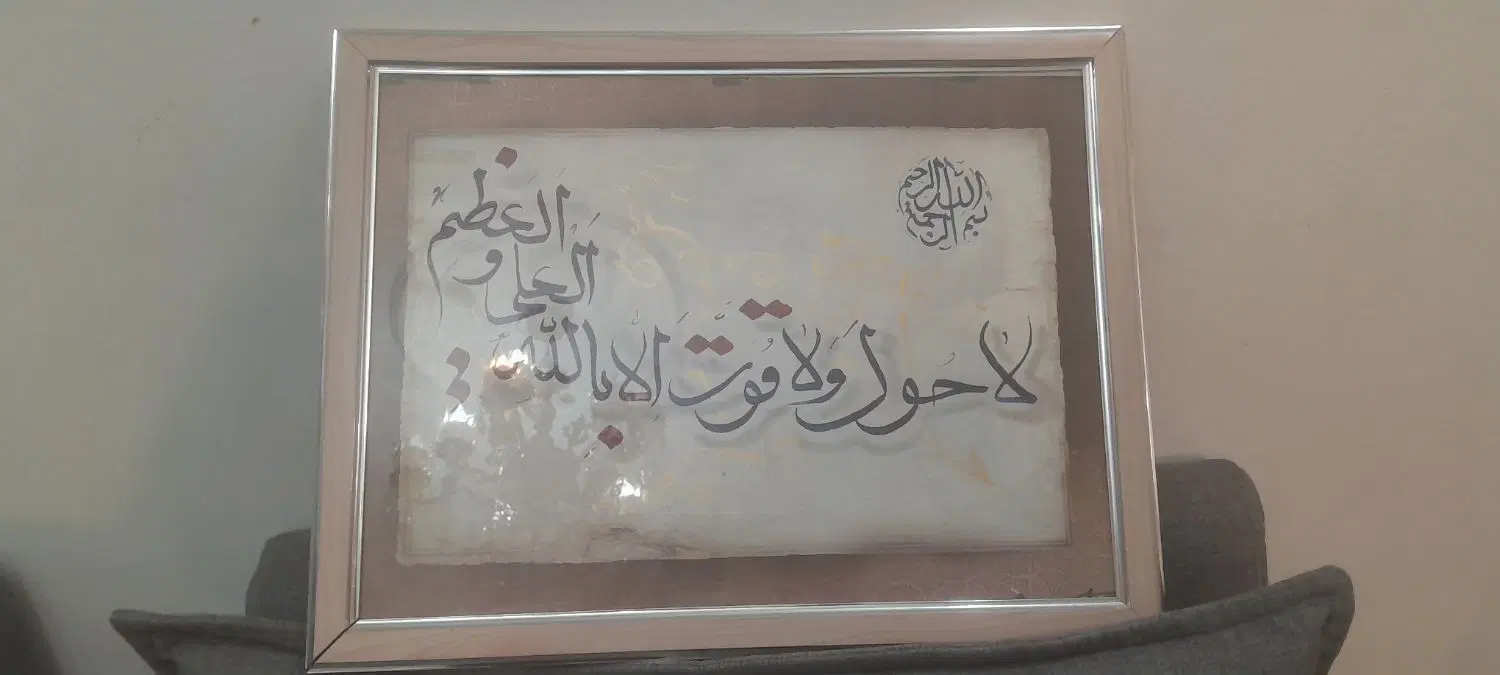 بسم الله الرحمن الرحیم
لا حول ولا قوت الا بالله
العلی و
العظیم